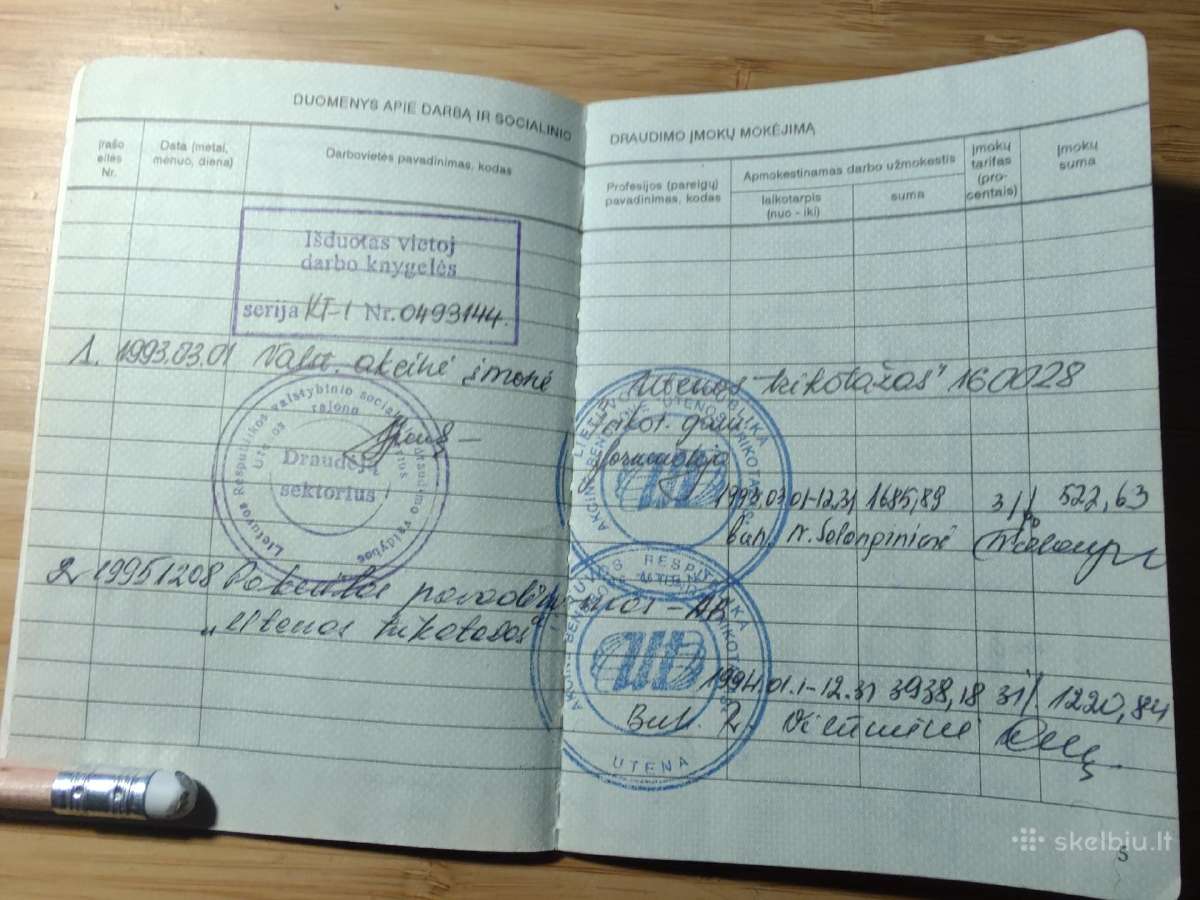 DUOMENYS APIE DARBĄ IR SOCIALINIO
Įrašo eilės Nr.
Data (metai, mėnuo, diena)
Darbovietės pavadinimas, kodas
Išduotas vietoj
darbo knygelės
serija KT-1 Nr. 0493144.
1. 1993.03.01 Valst. akcinė įmonė
Lietuvos Respublikos valstybinio socialinio draudimo valdybos
Utenos rajono
Draudėjų
sektorius
2. 19951208 Pakeistas pavadinimas - AB
„Utenos trikotažas"
DRAUDIMO ĮMOKŲ MOKĖJIMĄ
Profesijos (pareigų) pavadinimas, kodas
Apmokestinamas darbo užmokestis
laikotarpis (nuo - iki)
suma
Įmokų tarifas (procentais)
Įmokų suma
„Utenos trikotažas" 160028
1993.03.01-12.31 1685,89 31 522,63
buh.
1994.01.1-12.31 3938,18 31 1220,84
Buh.
UTENA
5
skelbiu.lt